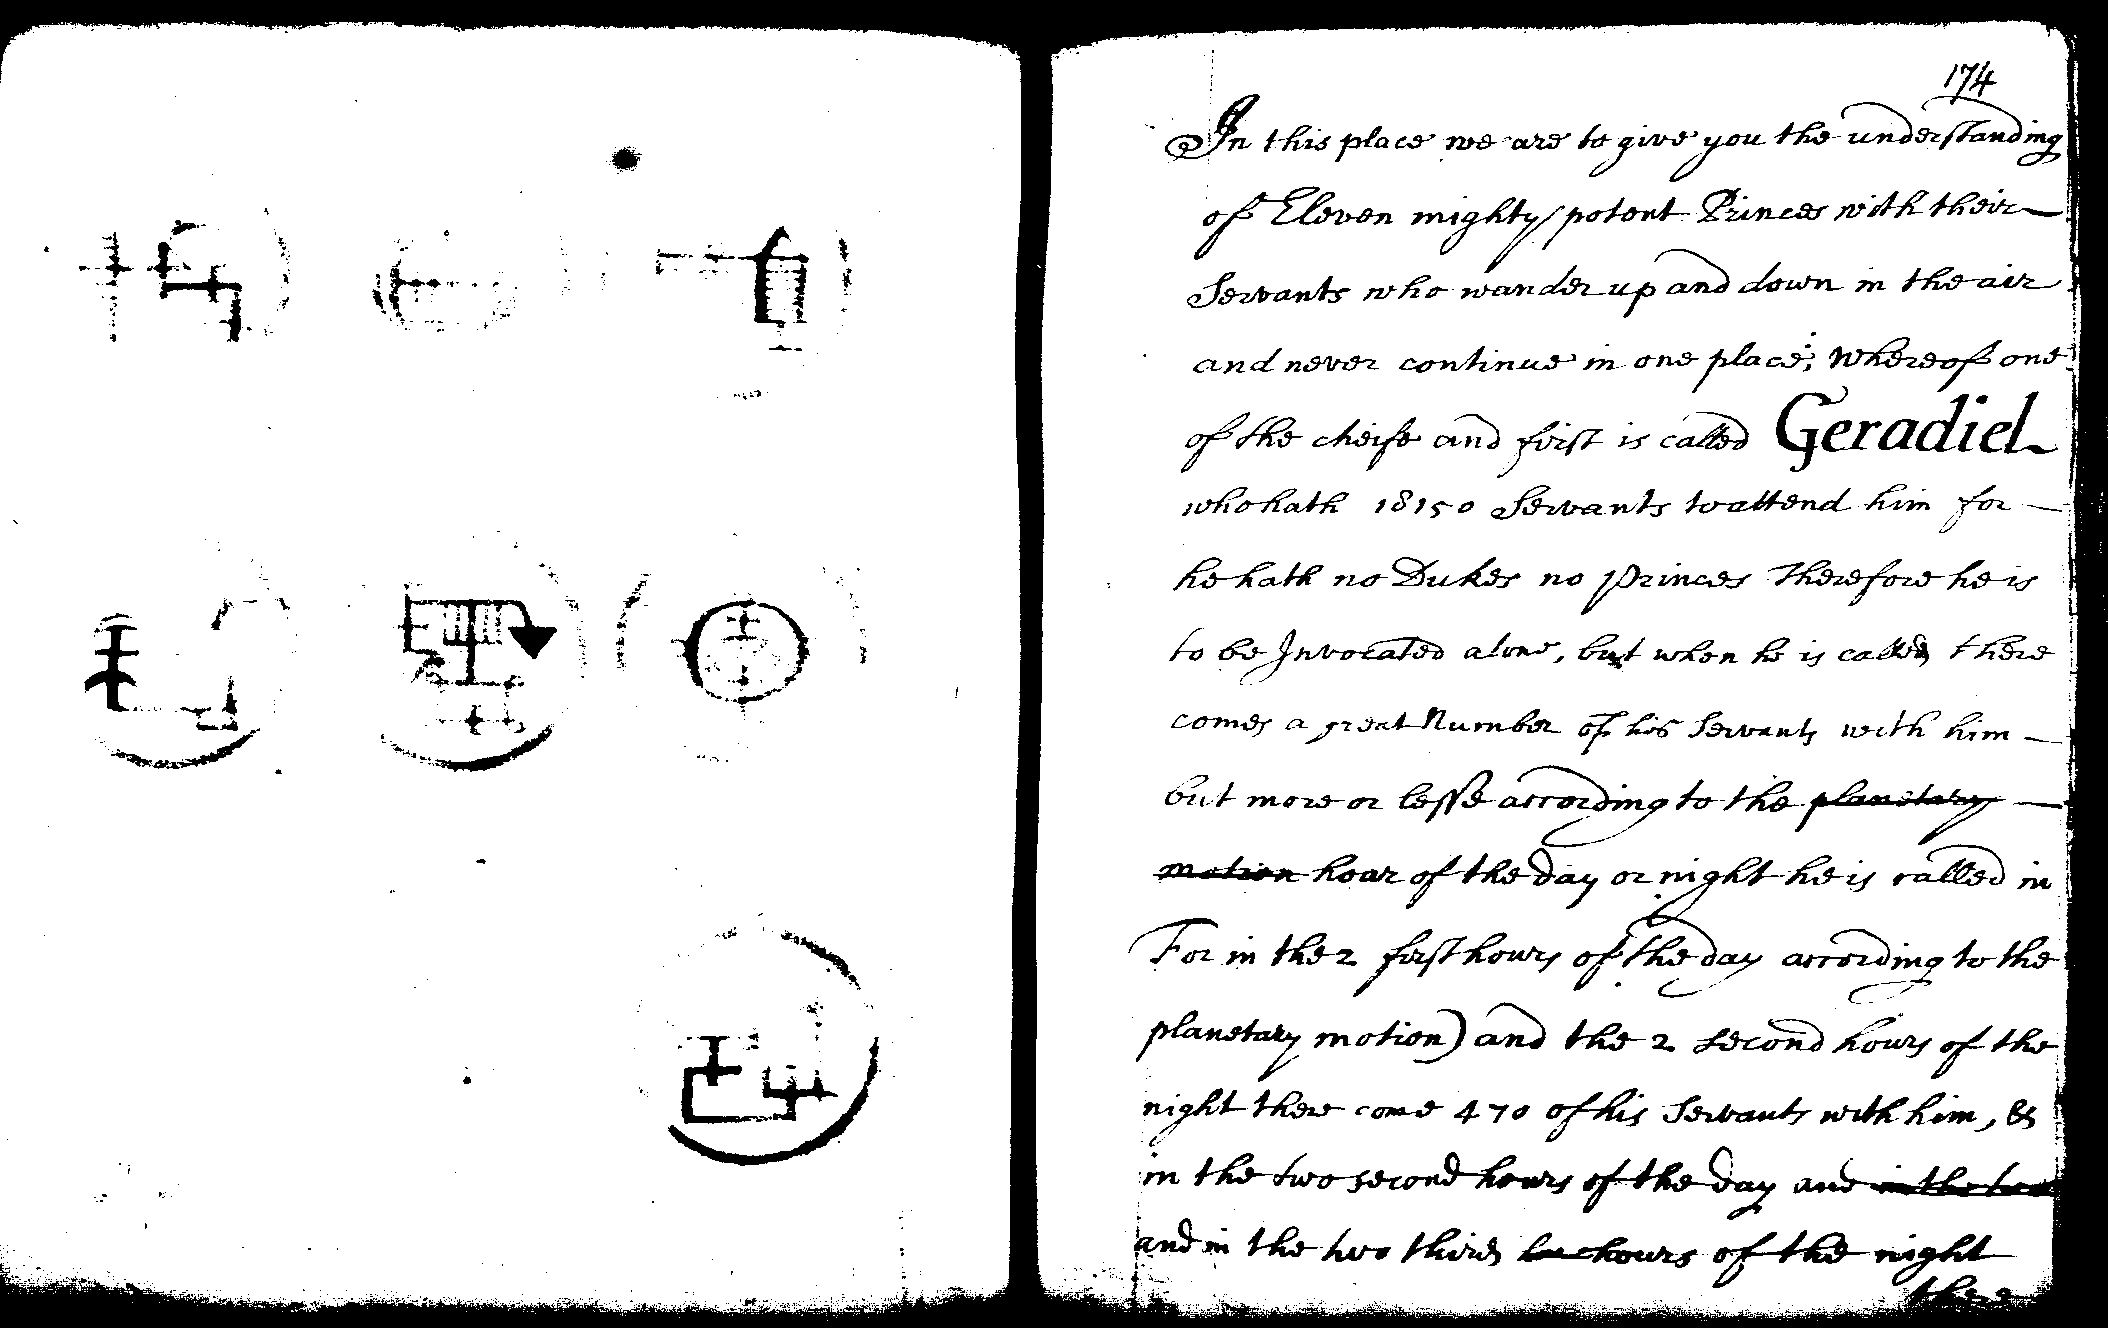 174
In this place we are to give you the understanding
of Eleven mighty / potent Princes with their
Servants who wander up and down in the air
and never continue in one place; whereof one
of the cheife and first is called Geradiel
who hath 18150 Servants to attend him for
he hath no Dukes no princes Therefore he is
to be Invocated alone, but when he is called there
comes a great Number of his Servants with him
but more or lesse according to the planetary
motion hour of the day or night he is called in
For in the 2 first hours of the day according to the
planetary motion) and the 2 second hours of the
night there come 470 of his Servants with him, &
in the two second hours of the day and in the two
and in the two third hours of the night
there